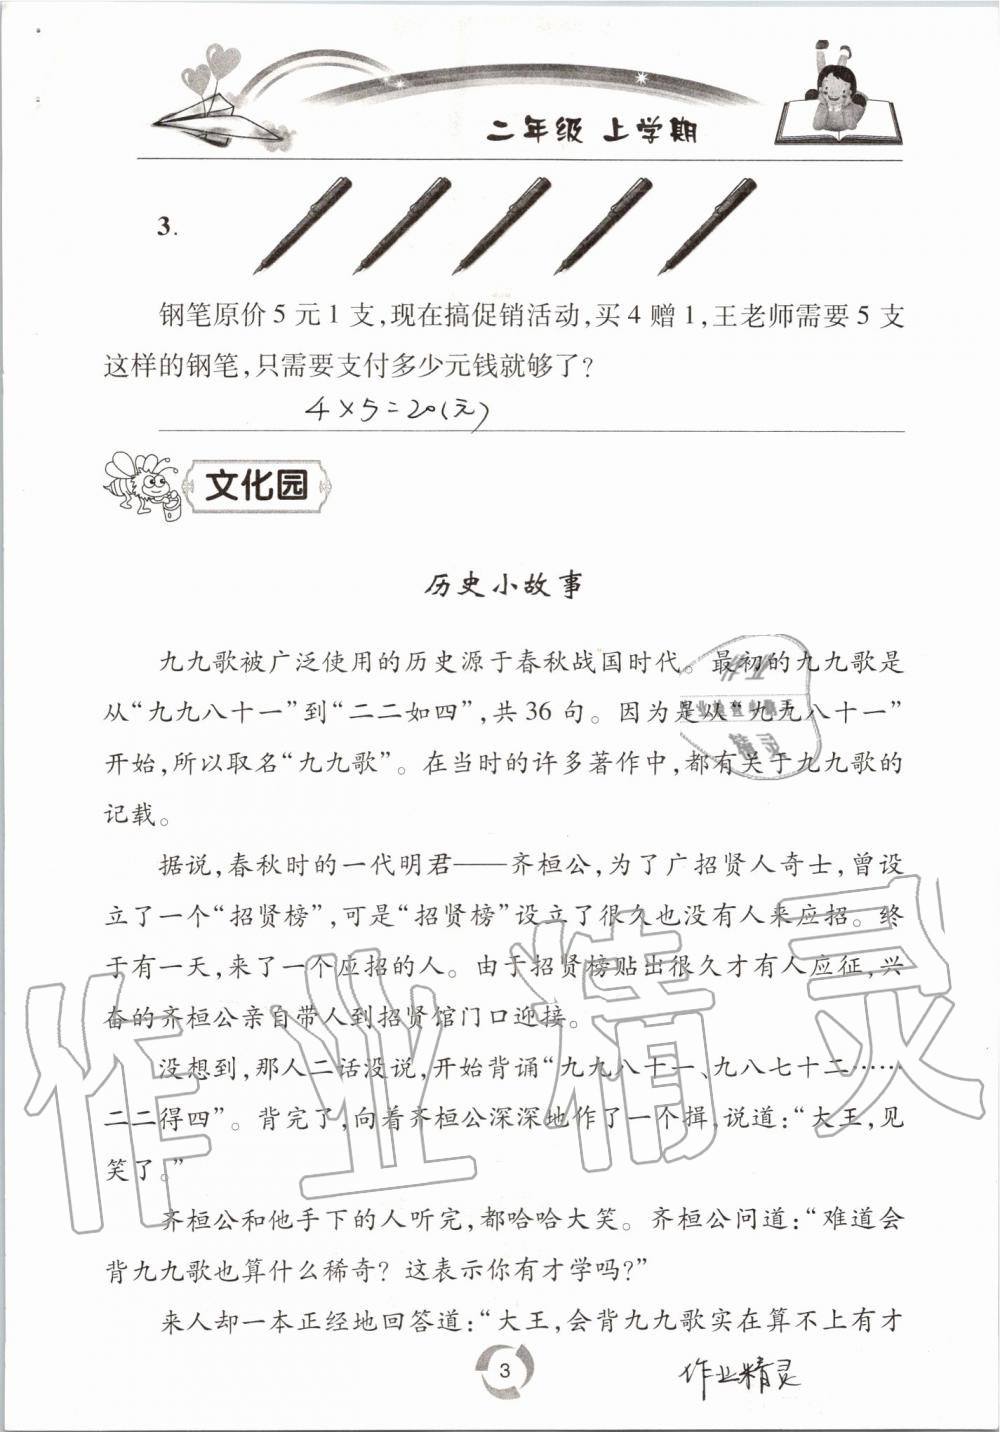 二年级 上学期
3.
钢笔原价5元1支,现在搞促销活动,买4赠1,王老师需要5支
这样的钢笔,只需要支付多少元钱就够了?
4×5=20(元)
文化园
历史小故事
九九歌被广泛使用的历史源于春秋战国时代。最初的九九歌是
从“九九八十一”到“二二如四”,共36句。因为是从“九九八十一”
开始,所以取名“九九歌”。在当时的许多著作中,都有关于九九歌的
记载。
据说,春秋时的一代明君——齐桓公,为了广招贤人奇士,曾设
立了一个“招贤榜”,可是“招贤榜”设立了很久也没有人来应招。终
于有一天,来了一个应招的人。由于招贤榜贴出很久才有人应征,兴
奋的齐桓公亲自带人到招贤馆门口迎接。
没想到,那人二话没说,开始背诵“九九八十一、九八七十二……
二二得四”。背完了,向着齐桓公深深地作了一个揖,说道:“大王,见
笑了。”
齐桓公和他手下的人听完,都哈哈大笑。齐桓公问道:“难道会
背九九歌也算什么稀奇?这表示你有才学吗?”
来人却一本正经地回答道:“大王,会背九九歌实在算不上有才
3
作业精灵
作业精灵